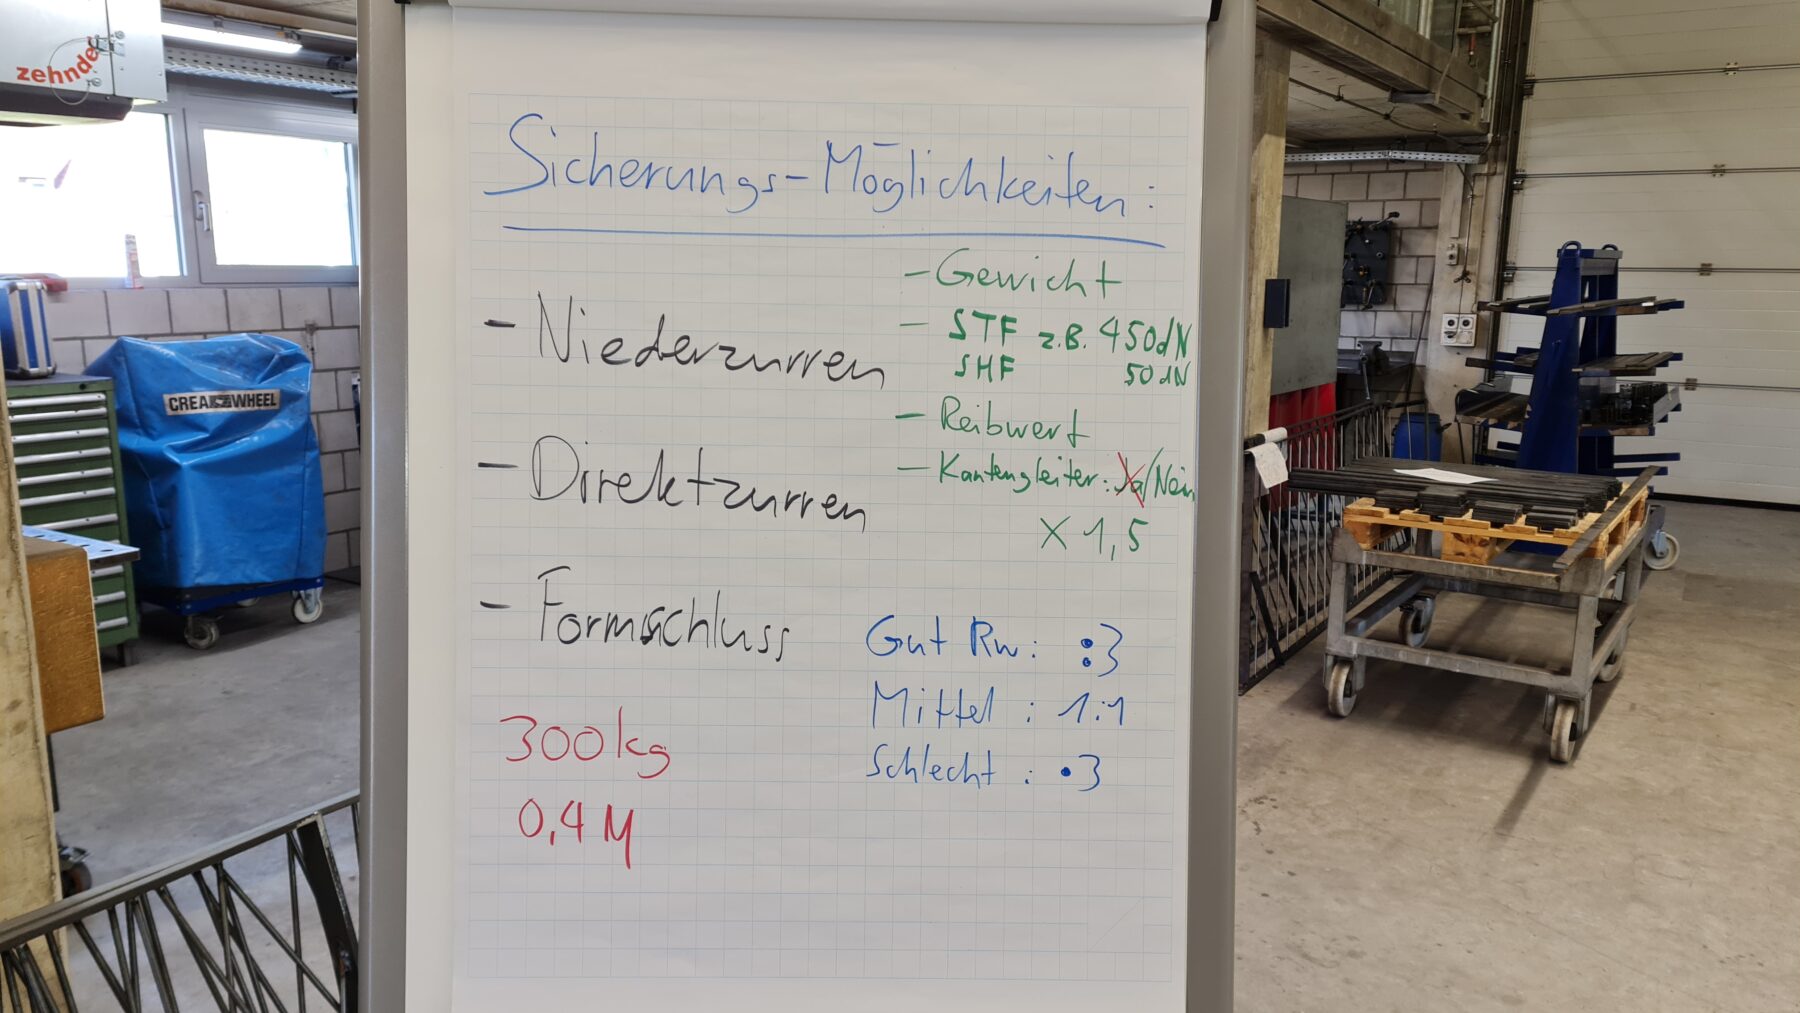 zehnder
CREA WHEEL
Sicherungs-Möglichkeiten:
- Niederzurren
- Direktzurren
- Formschluss
300kg
0,4 M
- Gewicht
- STF z.B. 450dN
SHF 50dN
- Reibwert
- Kantengleiter: Ja/Nein
X 1,5
Gut Rw: :3
Mittel : 1:1
Schlecht : •3